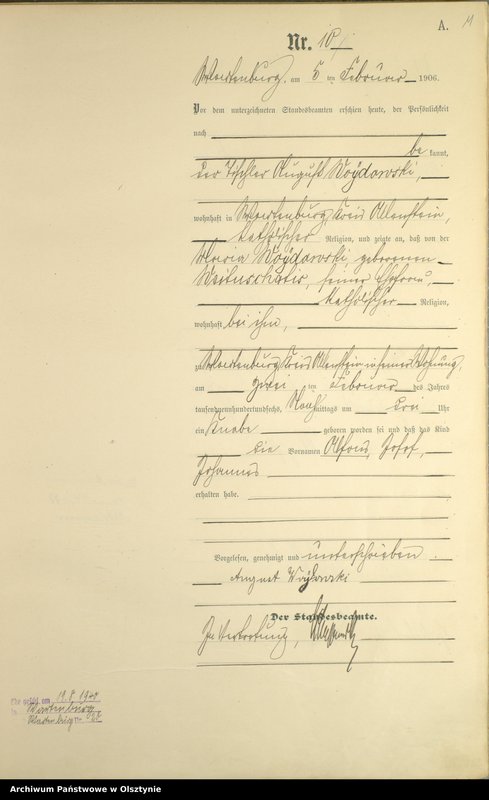 A.
Nr. 10
Wartenburg, am 5 ten Februar 1906.
Vor dem unterzeichneten Standesbeamten erschien heute, der Persönlichkeit
nach
be kannt,
der Tischler August Woydowski,
wohnhaft in Wartenburg, Kreis Allenstein,
katholischer Religion, und zeigte an, daß von der
Maria Woydowski, geborenen
seiner Ehefrau,
katholischer Religion,
wohnhaft bei ihm,
zu Wartenburg Kreis Allenstein in seiner Wohnung,
am zwei ten Februar des Jahres
tausendneunhundertundsechs, Nachmittags um drei Uhr
ein Knabe geboren worden sei und daß das Kind
die Vornamen Alfons, Josef,
Johannes
erhalten habe.
Vorgelesen, genehmigt und unterschrieben.
August Woydowski
Der Standesbeamte.
In Vertretung,
Wartenburg
Wartenburg Nr.
Archiwum Państwowe w Olsztynie